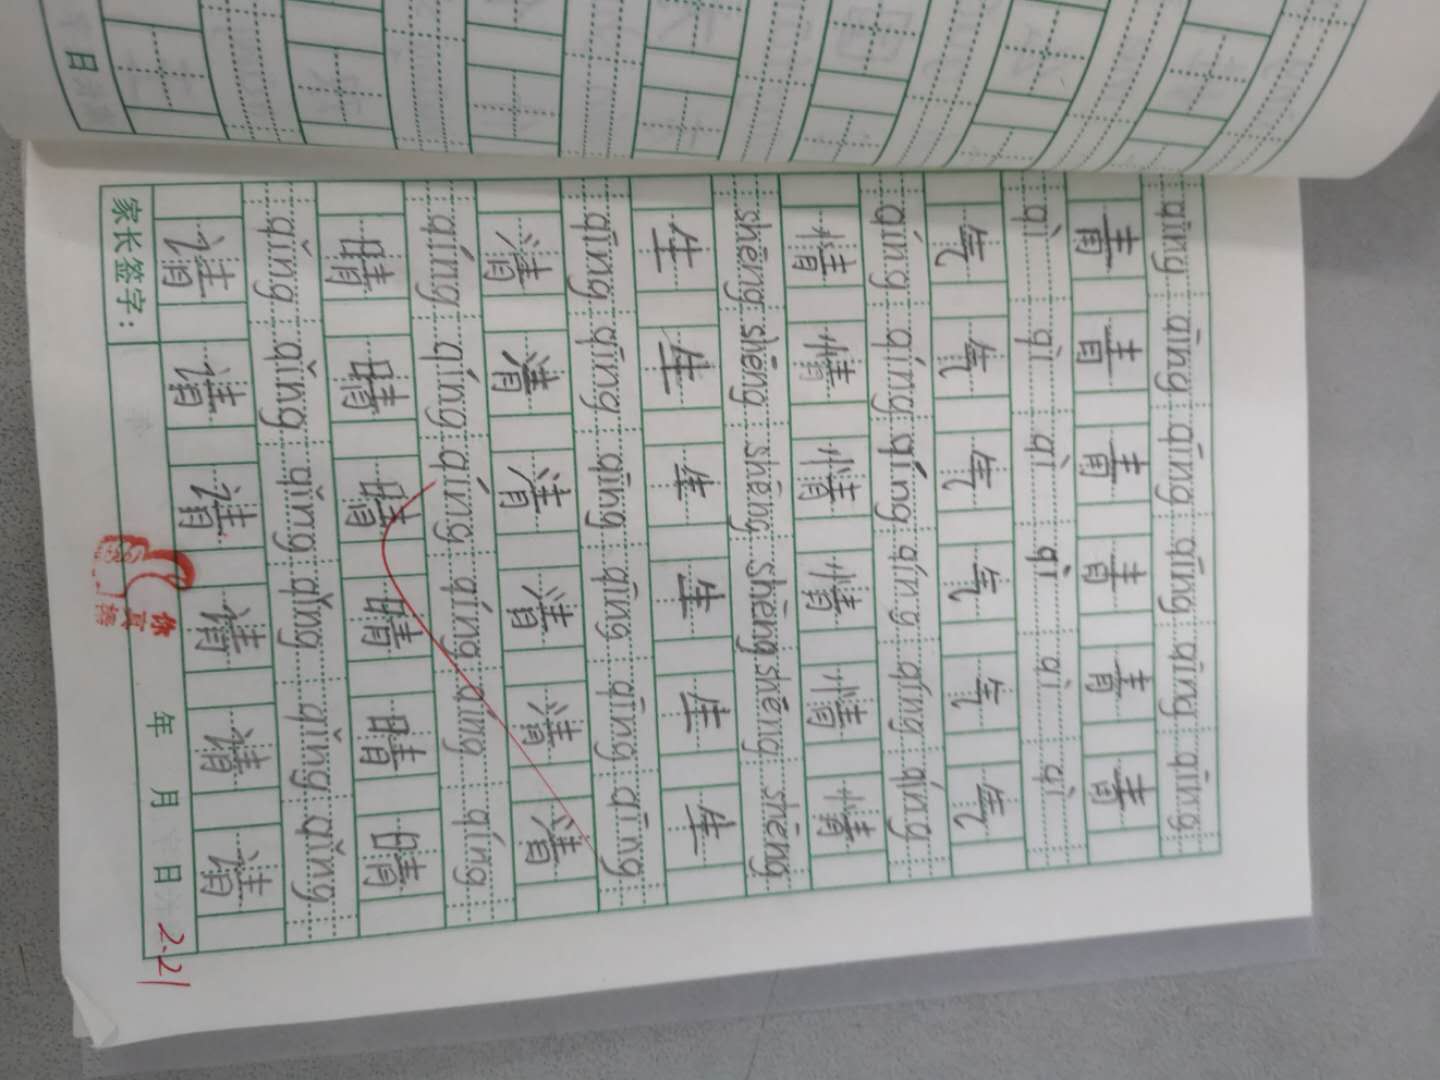 qīng qīng qīng qīng qīng qīng
青 青 青 青 青 青
qì qì qì qì qì qì
气 气 气 气 气 气
qíng qíng qíng qíng qíng qíng
情 情 情 情 情 情
shēng shēng shēng shēng shēng shēng
生 生 生 生 生 生
qīng qīng qīng qīng qīng qīng
清 清 清 清 清 清
qíng qíng qíng qíng qíng qíng
晴 晴 晴 晴 晴 晴
qǐng qǐng qǐng qǐng qǐng qǐng
请 请 请 请 请 请
家长签字： 年 月 日 2.21
日